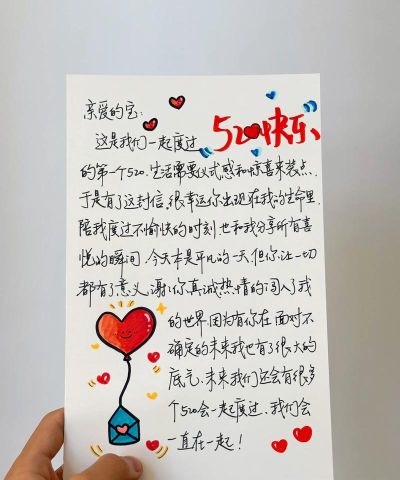 亲爱的宝:
520快乐、
这是我们一起度过
的第一个520.生活需要仪式感和惊喜来装点.
于是有了这封信.很幸运你出现在我的生命里.
陪我度过不愉快的时刻.也和我分享所有喜
悦的瞬间.今天本是平凡的一天.但你让一切
都有了意义.谢谢你真诚热情的闯入了我
的世界.因为有你在.面对不
确定的未来我也有了很大的
底气.未来我们还会有很多
个520会一起度过.我们会
一直在一起!